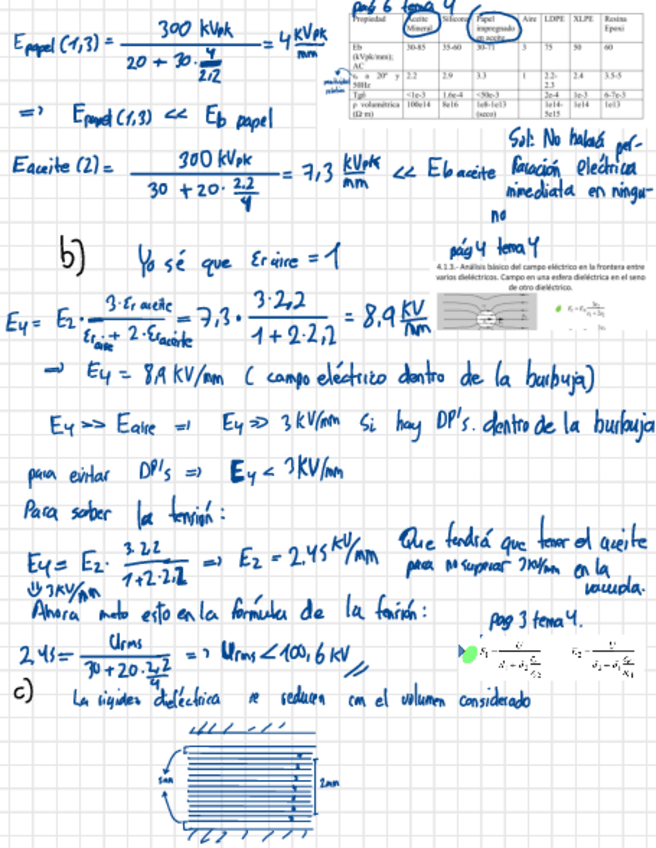 pág 6 tema 4
Propiedad Aceite Mineral Silicona Papel impregnado en aceite Aire LDPE XLPE Resina Epoxi
Eb (kVpk/mm); AC 30-85 35-60 30-71 3 75 50 60
a 20º y 50Hz 2.2 2.9 3.3 1 2.2-2.3 2.4 3.5-5
Tgδ <1e-3 1,6e-4 <50e-3 2e-4 1e-3 6-7e-3
ρ volumétrica (Ω m) 100e14 8e16 1e8-1e13 (seco) 1e14-5e15 1e14 1e13
E papel (1,3) = 300 kVpk / (20 + 30 · 4/2,2) = 4 kVpk/mm
=> E papel (1,3) << Eb papel
E aceite (2) = 300 kVpk / (30 + 20 · 2,2/4) = 7,3 kVpk/mm << Eb aceite
Sol: No habrá per-
foración eléctrica
inmediata en ningu-
no
b) Yo sé que εr aire = 1
pág 4 tema 4
4.1.3.- Análisis básico del campo eléctrico en la frontera entre
varios dieléctricos. Campo en una esfera dieléctrica en el seno
de otro dieléctrico.
E4 = E2 · 3·εr aceite / (εr aire + 2·εr aceite) = 7,3 · 3·2,2 / (1 + 2·2,2) = 8,9 KV/mm
=> E4 = 8,9 KV/mm (campo eléctrico dentro de la burbuja)
E4 >> E aire => E4 >> 3 KV/mm Si hay DP's. dentro de la burbuja
para evitar DP's => E4 < 3KV/mm
Para saber la tensión:
E4 = E2 · 3·2,2 / (1+2·2,2) => E2 = 2,45 KV/mm
Que tendrá que tener el aceite
para no superar 3KV/mm en la
vacuola.
⇓ 3KV/mm
Ahora meto esto en la fórmula de la tensión:
pag 3 tema 4.
2,45 = Urms / (30 + 20 · 2,2/4) => Urms < 100,6 KV
c) La rigidez dieléctrica se reduce con el volumen considerado
2mm